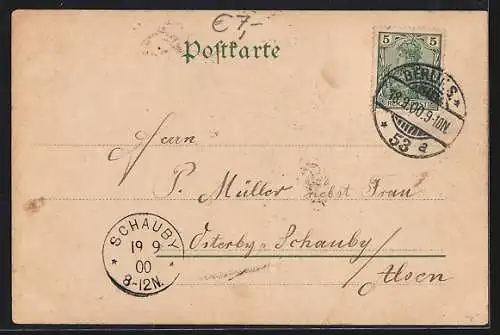 €7,-
Postkarte
5 5
BERLIN S.
18.9.00.9-10N.
* 53 a
Herrn
P. Müller nebst Frau
Osterby v Schauby
Alsen
SCHAUBY
19 9
00
8-12N.